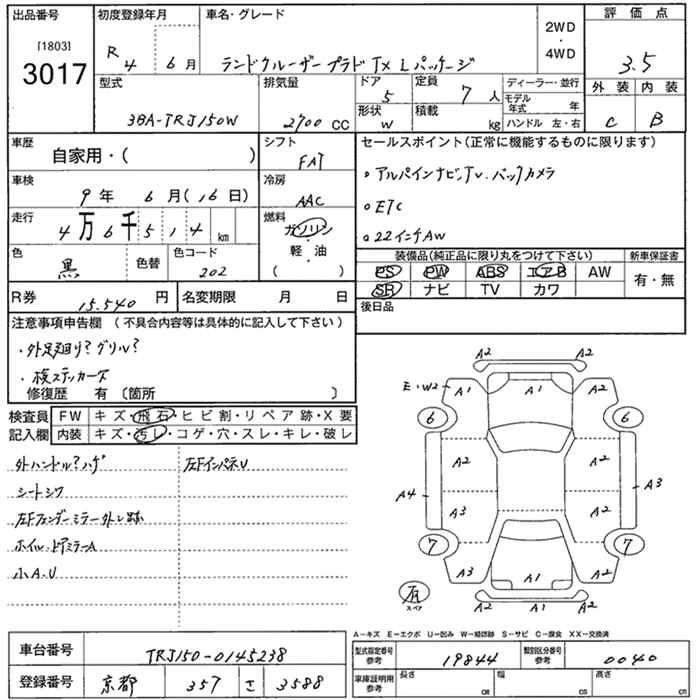 出品番号
[1803]
3017
初度登録年月
R4 6月
車名・グレード
ランドクルーザープラド TX Lパッケージ
2WD
・
4WD
評価点
3.5
外装 内装
C B
型式
3BA-TRJ150W
排気量
2700 CC
ドア
5
定員
7人
形状
W
積載
kg
ディーラー・並行
モデル年式 年
ハンドル 左・右
車歴
自家用・( )
シフト
FAT
車検
9年 6月(16日)
冷房
AAC
走行
4万6千514km
燃料
ガソリン
軽・油
( )
色
黒
色替
色コード
202
R券
15.540 円
名変期限 月 日
セールスポイント(正常に機能するものに限ります)
・アルパインナビ、TV、バックカメラ
・ETC
・22インチAW
装備品(純正品に限り丸をつけて下さい)
新車保証書
PS PW ABS エアB AW
SR ナビ TV カワ
有・無
後日品
注意事項申告欄 (不具合内容等は具体的に記入して下さい)
・外足廻り?グリル?
・検ステッカーズ
修復歴 有 〔箇所 〕
検査員
記入欄
FW キズ・飛石・ヒビ割・リペア跡・X要
内装 キズ・汚レ・コゲ・穴・スレ・キレ・破レ
外ハンドル?ハゲ
左FインパネU
シートシワ
左Fフェンダーミラー外し跡
ホイル、ドアミラーA
小A.U
A2 A2
E・W2
A1 A1 A2
6 6
A2 A2
A4 A3
A3 A2
7 7
A3 A1 A2
A2 A2
有
スペア
A-キズ E-エクボ U-凹み W-補修跡 S-サビ C-腐食 XX-交換済
車台番号
TRJ150-0145238
登録番号
京都 357 さ 3588
型式指定番号
参考
19844
類別区分番号
参考
0040
車庫証明用
参考
長さ cm
幅 cm
高さ cm